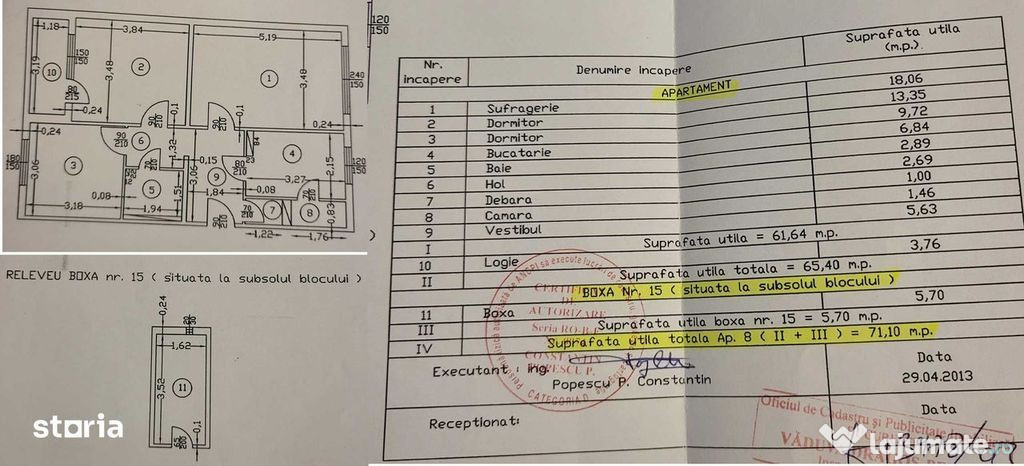 1,18
3,84
5,19
120
150
150
150
3,19
10
2
1
3,48
3,48
240
150
80
215
0,24
0,1
90
210
0,24
0,24
90
210
6
1,32
84
23
4
2,15
120
150
180
150
3,06
3
0,15
3,06
9
80
210
3,27
0,08
5
1,51
1,84
0,08
70
210
7
8
0,83
3,18
1,94
90
210
1,22
1,76
RELEVEU BOXA nr. 15 ( situata la subsolul blocului )
0,24
20
30
1,62
3,52
11
0,1
storia
Nr. incapere Denumire incapere Suprafata utila (m.p.).
APARTAMENT
1 Sufragerie 18,06
2 Dormitor 13,35
3 Dormitor 9,72
4 Bucatarie 6,84
5 Baie 2,89
6 Hol 2,69
7 Debara 1,00
8 Camara 1,46
9 Vestibul 5,63
I Suprafata utila = 61,64 m.p.
10 Logie 3,76
II Suprafata utila totala = 65,40 m.p.
BOXA Nr. 15 ( situata la subsolul blocului )
11 Boxa 5,70
III Suprafata utila boxa nr. 15 = 5,70 m.p.
IV Suprafata utila totala Ap. 8 ( II + III ) = 71,10 m.p.
Executant : ing. Popescu P. Constantin
Data
29.04.2013
Receptionat:
Data
DE
AUTORIZARE
Seria RO-B-F
CONSTANTIN
POPESCU P.
CATEGORIA D
Oficiul de Cadastru și Publicitate
lajumate.ro